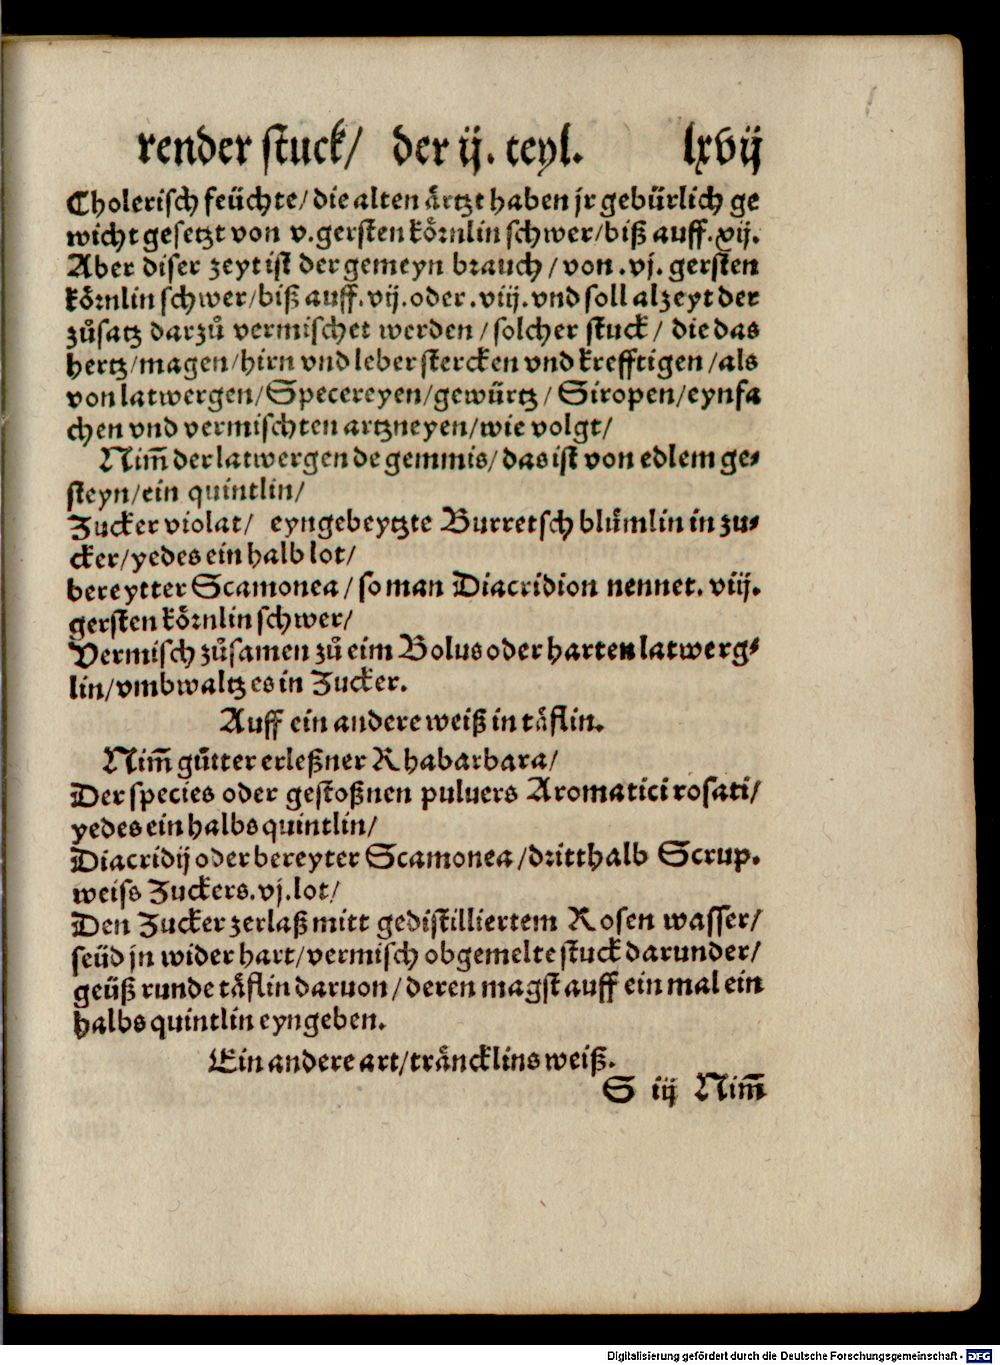 render stuck/ der ij. teyl. lxvij
Cholerisch feüchte/die alten aͤrtzt haben jr gebürlich ge
wicht gesetzt von v.gersten koͤrnlin schwer/biß auff.xij.
Aber diser zeyt ist der gemeyn brauch/von.vj. gersten
koͤrnlin schwer/biß auff.vij.oder.viij.vnd soll alzeyt der
zůsatz darzů vermischet werden/solcher stuck/ die das
hertz/magen/hirn vnd leber stercken vnd krefftigen/als
von latwergen/Specereyen/gewürtz/Siropen/eynfa
chen vnd vermischten artzneyen/wie volgt/
Nim̃ der latwergen de gemmis/das ist von edlem ge⸗
steyn/ein quintlin/
Zucker violat/ eyngebeytzte Burretsch bluͤmlin in zu⸗
cker/yedes ein halb lot/
bereytter Scamonea/so man Diacridion nennet. viij.
gersten koͤrnlin schwer/
Vermisch zůsamen zů eim Bolus oder harten latwerg⸗
lin/vmbwaltz es in Zucker.
Auff ein andere weiß in taͤflin.
Nim̃ gůtter erleßner Rhabarbara/
Der species oder gestoßnen puluers Aromatici rosati/
yedes ein halbs quintlin/
Diacridij oder bereyter Scamonea/dritthalb Scrup.
weiss Zuckers.vj.lot/
Den Zucker zerlaß mitt gedistilliertem Rosen wasser/
seüd jn wider hart/vermisch obgemelte stuck darunder/
geüß runde taͤflin daruon/deren magst auff ein mal ein
halbs quintlin eyngeben.
Ein andere art/traͤncklins weiß.
S iij Nim̃
Digitalisierung gefördert durch die Deutsche Forschungsgemeinschaft - DFG